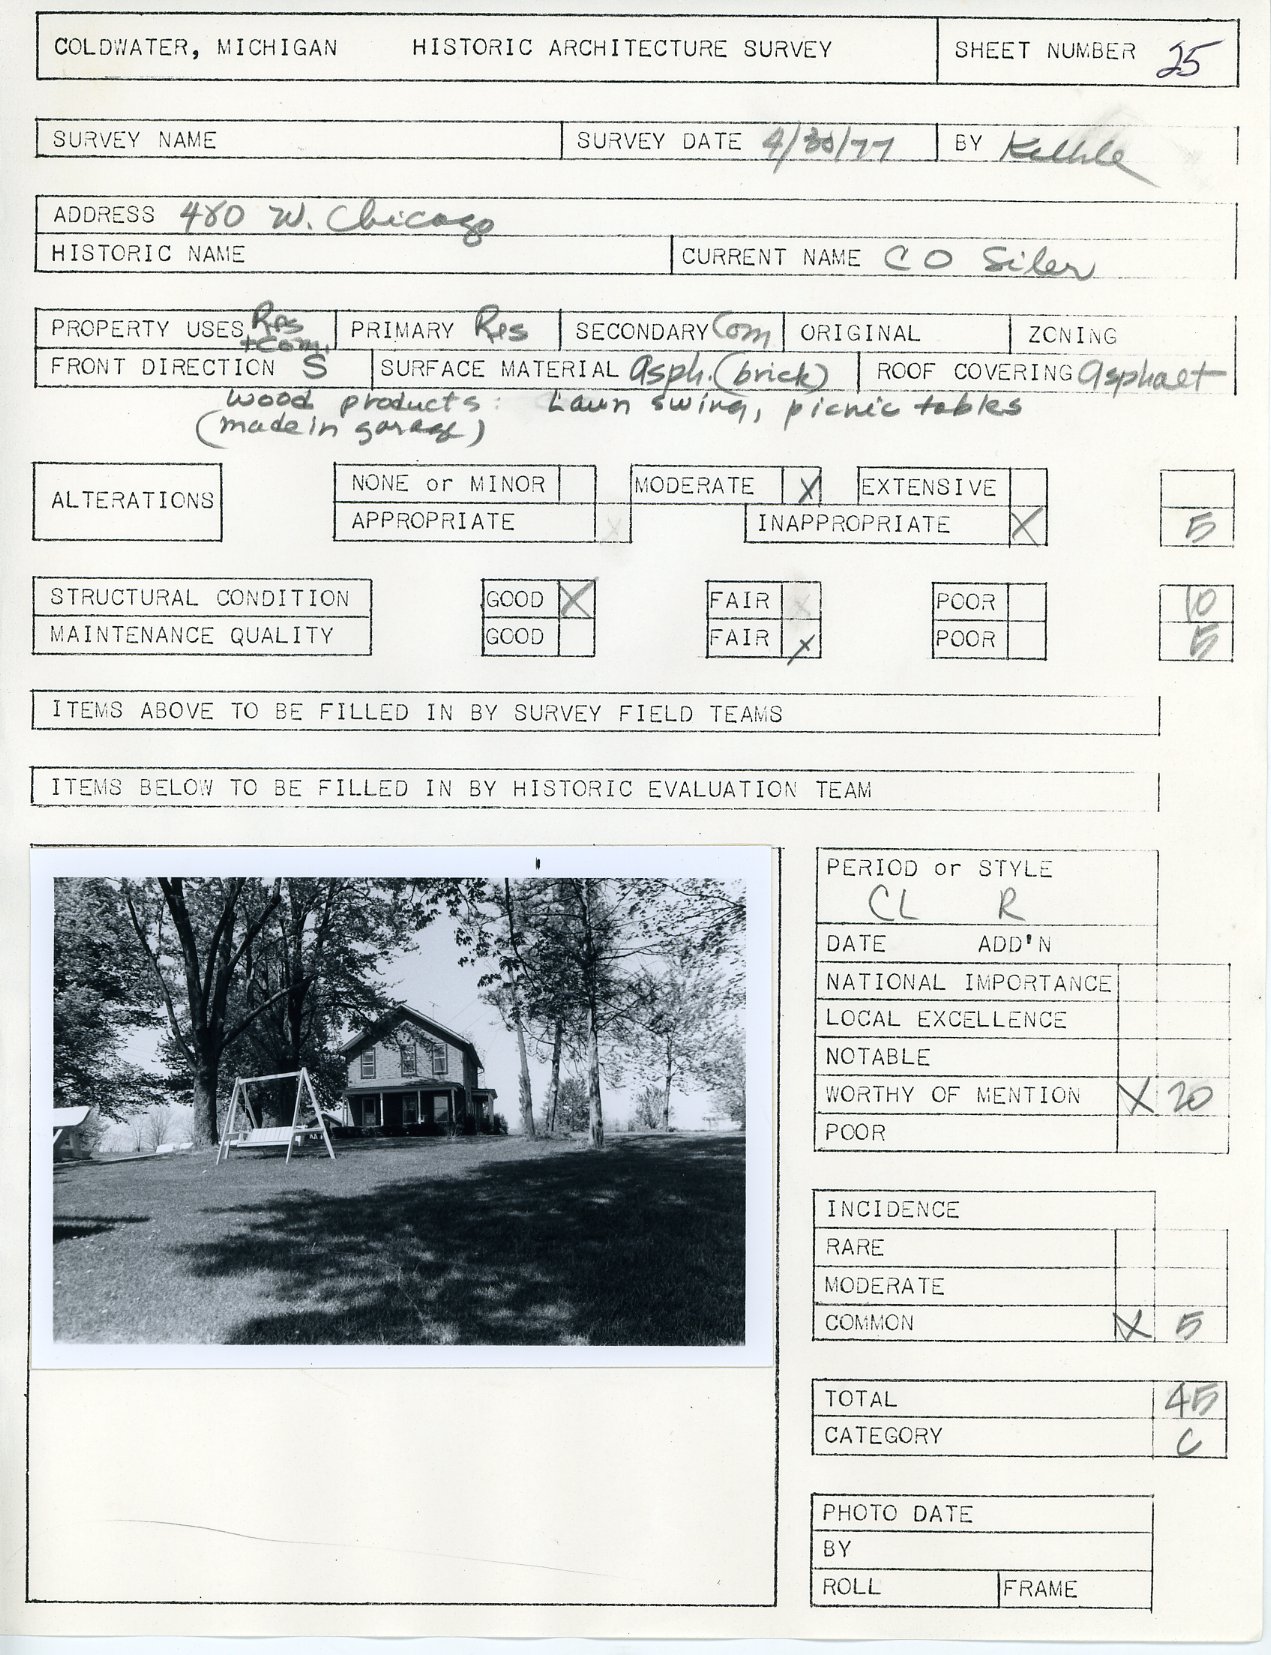 COLDWATER, MICHIGAN HISTORIC ARCHITECTURE SURVEY SHEET NUMBER 25
SURVEY NAME SURVEY DATE 4/30/77 BY
ADDRESS 480 W. Chicago
HISTORIC NAME CURRENT NAME C O Siler
PROPERTY USES Res + Com. PRIMARY Res SECONDARY Com ORIGINAL ZONING
FRONT DIRECTION S SURFACE MATERIAL Asph. (brick) ROOF COVERING Asphalt
wood products: Lawn swing, picnic tables
(made in garage)
ALTERATIONS NONE or MINOR MODERATE X EXTENSIVE
APPROPRIATE INAPPROPRIATE X 5
STRUCTURAL CONDITION GOOD X FAIR POOR 10
MAINTENANCE QUALITY GOOD FAIR X POOR 5
ITEMS ABOVE TO BE FILLED IN BY SURVEY FIELD TEAMS
ITEMS BELOW TO BE FILLED IN BY HISTORIC EVALUATION TEAM
PERIOD or STYLE
CL R
DATE ADD'N
NATIONAL IMPORTANCE
LOCAL EXCELLENCE
NOTABLE
WORTHY OF MENTION X 20
POOR
INCIDENCE
RARE
MODERATE
COMMON X 5
TOTAL 45
CATEGORY C
PHOTO DATE
BY
ROLL FRAME